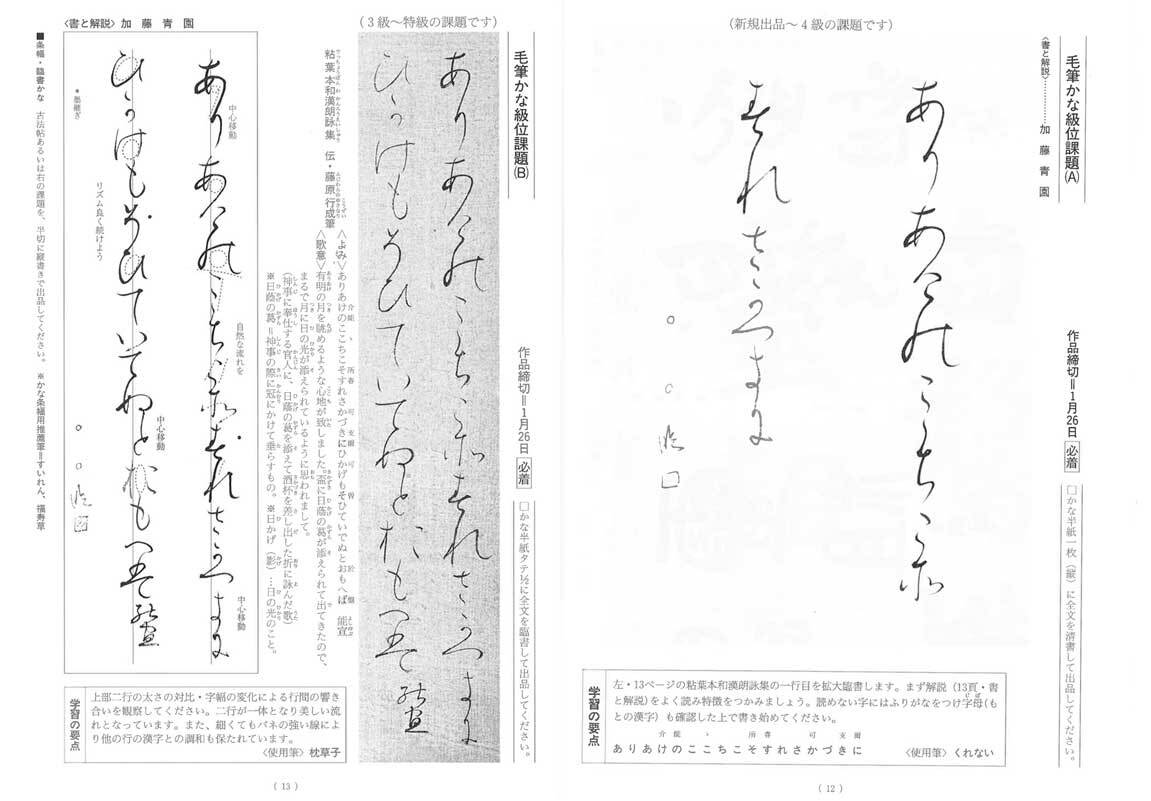 毛筆かな級位課題(A)
作品締切＝1月26日 必着
□かな半紙一枚（縦）に全文を清書して出品してください。
〈書と解説〉…………加藤青園
（新規出品～4級の課題です）
ありあけのここちこそ
すれさかづきに
臨
学習の要点
左・13ページの粘葉本和漢朗詠集の一行目を拡大臨書します。まず解説（13頁・書
と解説）をよく読み特徴をつかみましょう。読めない字にはふりがなをつけ字母(も
との漢字）も確認した上で書き始めてください。
ありあけのここちこそすれさかづきに
〈使用筆〉くれない
( 12 )
毛筆かな級位課題(B)
作品締切＝1月26日 必着
□かな半紙タテ½に全文を臨書して出品してください。
（3級～特級の課題です）
ありあけのここちこそすれさかづきに
ひかげもそひていでぬとおもへば 能宣
粘葉本和漢朗詠集 伝・藤原行成筆
〈よみ〉ありあけのここちこそすれさかづきにひかげもそひていでぬとおもへば 能宣
〈歌意〉有明の月を眺めるような心地が致しました。盃に日蔭の葛が添えられて出てきたので、
まるで月に日の光が添えられているように思われまして。
（神事に奉仕する官人に、日蔭の葛を添えて酒杯を差し出した折に詠んだ歌）
※日蔭の葛＝神事の際に冠にかけて垂らすもの。 ※日かげ（影）…日の光のこと。
〈書と解説〉加藤青園
中心移動
自然な流れを
中心移動
ありあけのここちこそすれさかづきに
中心移動
ひかげもそひていでぬとおもへば 能宣
リズム良く続けよう
＊墨継ぎ
臨
■条幅・臨書かな 古法帖あるいは右の課題を、半切に縦書きで出品してください。 ※かな条幅用推薦筆＝すいれん、福寿草
学習の要点
上部二行の太さの対比・字幅の変化による行間の響き
合いを観察してください。二行が一体となり美しい流
れとなっています。また、細くてもバネの強い線によ
り他の行の漢字との調和も保たれています。
〈使用筆〉枕草子
( 13 )